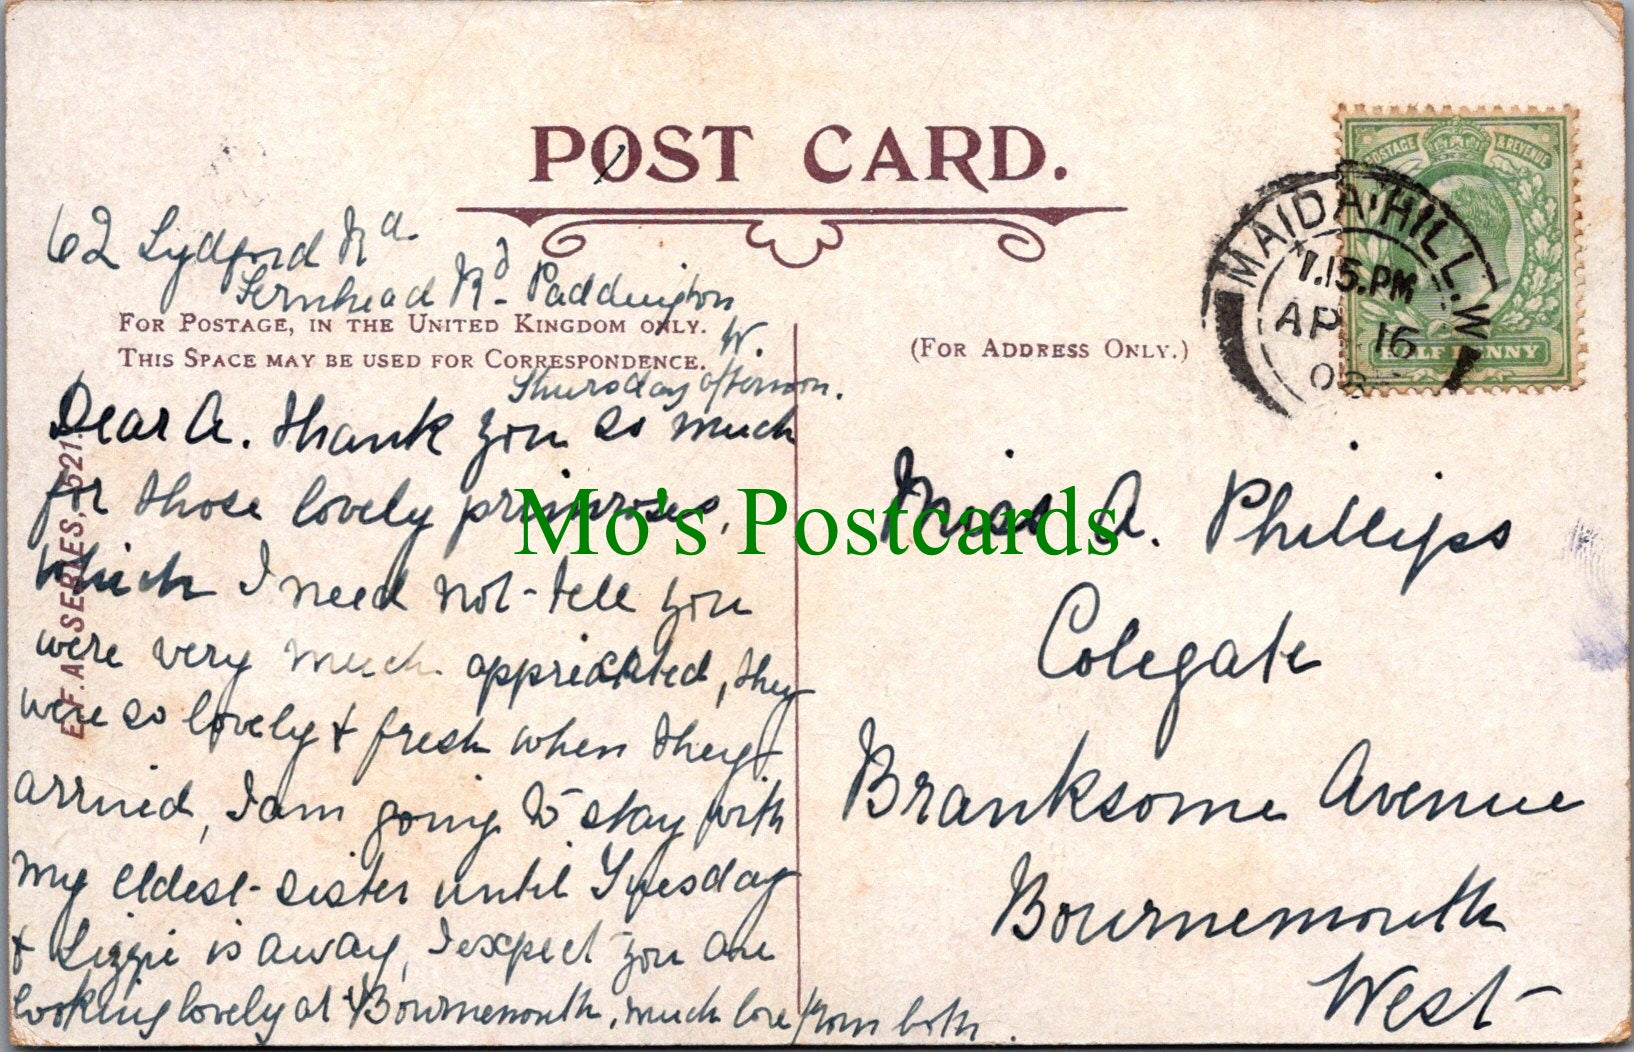 POST CARD.
62 Lydford Rd
Fernhead Rd Paddington
W.
FOR POSTAGE, IN THE UNITED KINGDOM ONLY.
THIS SPACE MAY BE USED FOR CORRESPONDENCE.
Thursday afternoon.
Dear A. Thank you so much
for those lovely primroses,
which I need not tell you
were very much appreciated, they
were so lovely & fresh when they
arrived, I am going to stay with
my eldest sister until Tuesday
& Lizzie is away, I expect you are
looking lovely at Bournemouth, much love from both.
E.F.A. SERIES, 521.
(FOR ADDRESS ONLY.)
POSTAGE & REVENUE
HALF PENNY
MAIDA·HILL.W
7.15.PM
AP 16
08
Miss A. Phillips
Colegate
Branksome Avenue
Bournemouth
West
Mo's Postcards